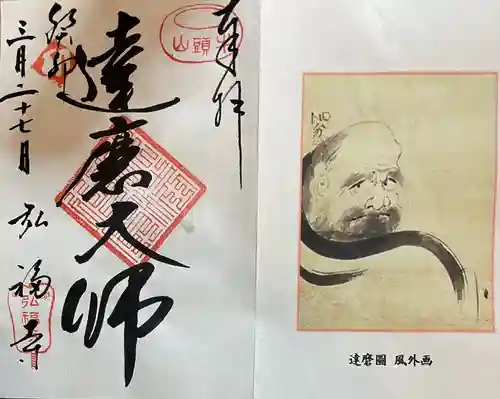 奉拝
牛頭山
達磨大師
癸卯
三月二十七日
弘福寺
達磨圖 風外画